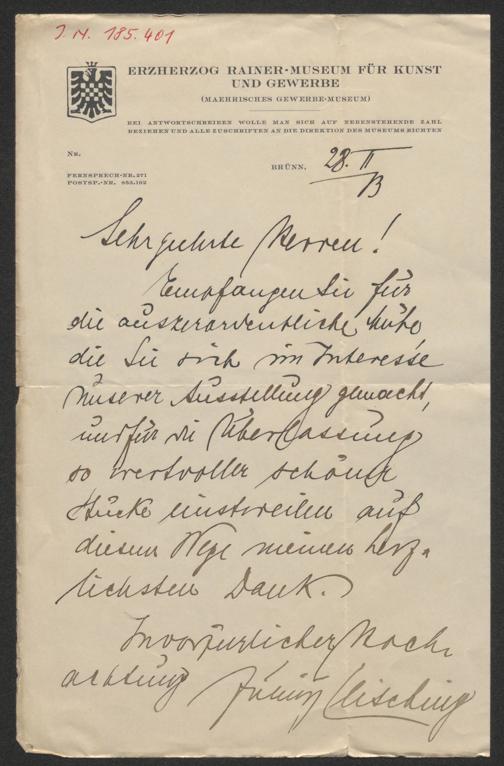 J. N. 185.401
ERZHERZOG RAINER-MUSEUM FÜR KUNST
UND GEWERBE
(MAEHRISCHES GEWERBE-MUSEUM)
BEI ANTWORTSCHREIBEN WOLLE MAN SICH AUF NEBENSTEHENDE ZAHL
BEZIEHEN UND ALLE ZUSCHRIFTEN AN DIE DIREKTION DES MUSEUMS RICHTEN
NR.
BRÜNN, 28. II
13
FERNSPRECH-NR. 271
POSTSP.-NR. 853.182
Sehr geehrte Herren!
Empfangen Sie für
die auszerordentliche Mühe,
die Sie sich im Interesse
unserer Ausstellung gemacht,
und für die Überlassung
so wertvoller schöner
Stücke einstweilen auf
diesem Wege meinen herz-
lichsten Dank.
In vorzüglicher Hoch-
achtung Julius Leisching